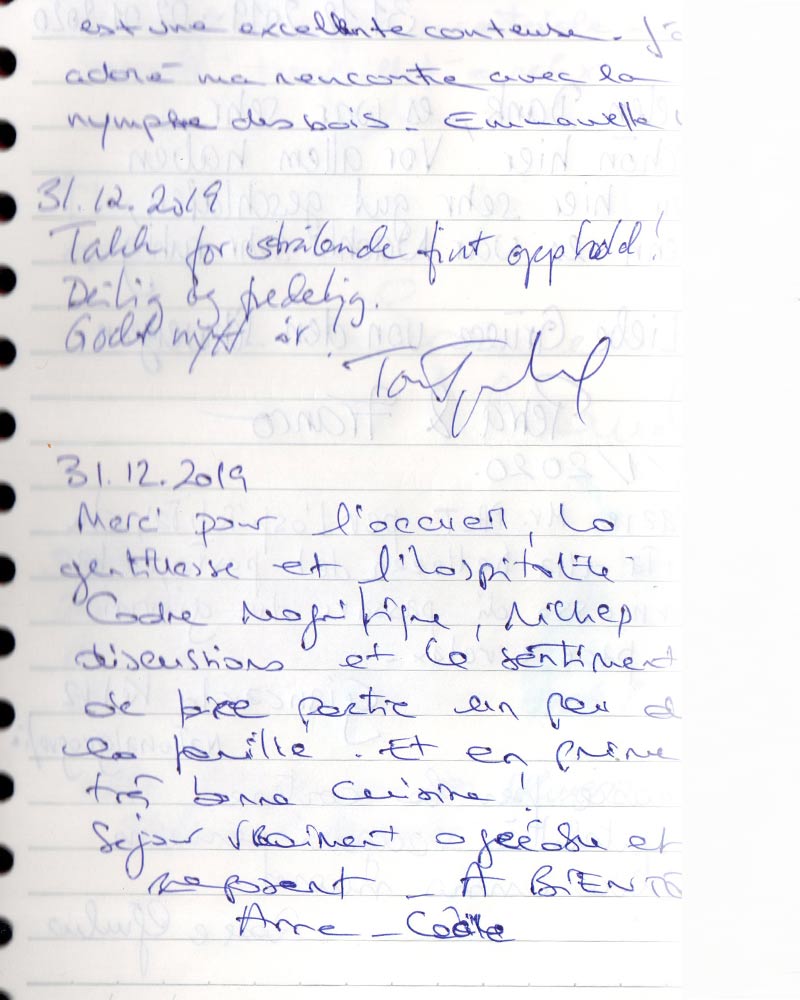 est une excellente conteuse. J'a
adoré ma rencontre avec la
nymphe des bois. Emmanuelle
31.12.2019
Takk for strålende fint opphold!
Deilig og fredelig.
Godt nytt år.
31.12.2019
Merci pour l'accueil, la
gentillesse et l'hospitalité
Cadre magnifique, riches
discussions et le sentiment
de faire partie un peu d
la famille. Et en prime
très bonne cuisine!
Séjour vraiment agréable et
reposant - A BIENTÔ
Anne-Cécile